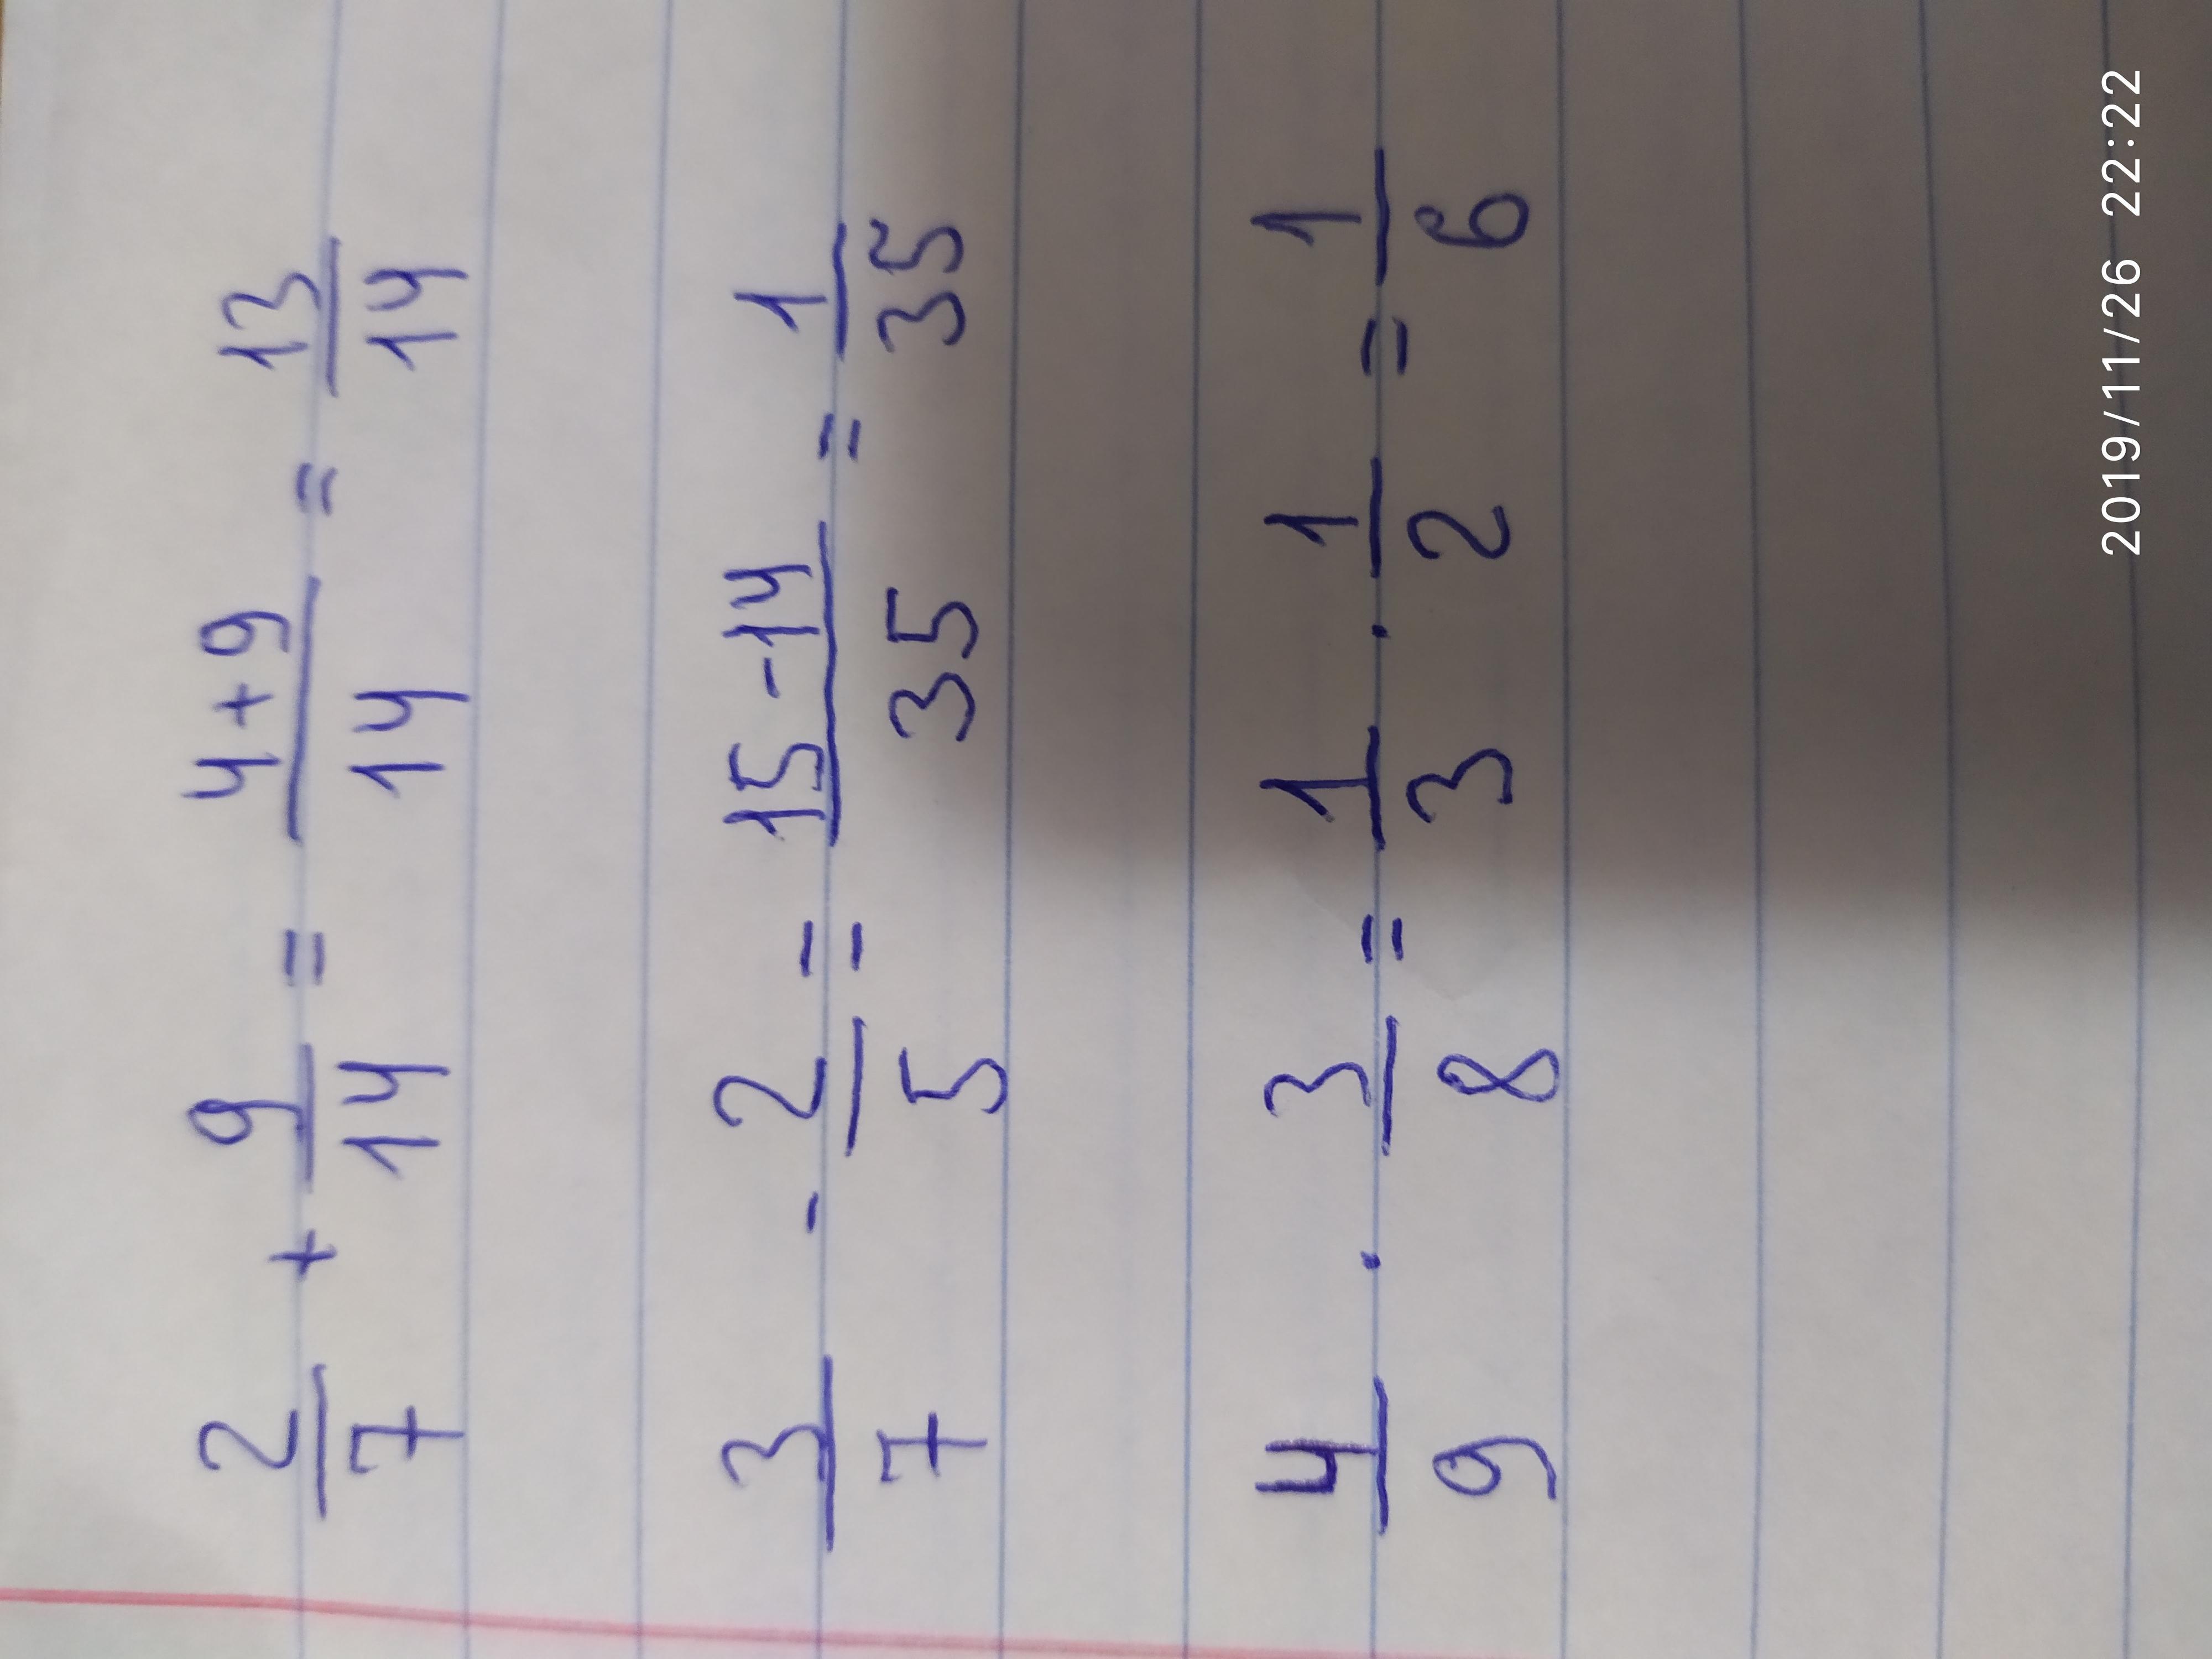 2/7 + 9/14 = (4+9)/14 = 13/14
3/7 - 2/5 = (15-14)/35 = 1/35
4/9 · 3/8 = 1/3 · 1/2 = 1/6
2019/11/26 22:22